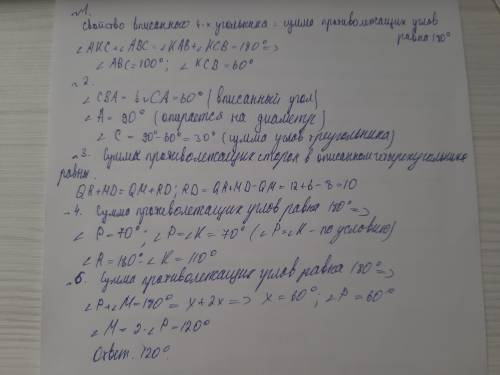 №1.
Свойство вписанного 4-х угольника: сумма противолежащих углов
равна 180°
∠AKC+∠ABC=∠KAB+∠KCB=180°=>
∠ABC=100°; ∠KCB=60°
№2.
∠CBA = ½ CA=60° (вписанный угол)
∠A = 90° (опирается на диаметр)
∠C = 90°-60°=30° (сумма углов треугольника)
№3. Сумма противолежащих сторон в описанном четырехугольнике
равны.
QR+MD=QM+RD; RD=QR+MD-QM=12+6-8=10
№4. Сумма противолежащих углов равна 180°=>
∠P=70°; ∠P=∠K=70° (∠P=∠K-по условию)
∠R=180°-∠K=110°
№5. Сумма противолежащих углов равна 180°=>
∠P+∠M=180°=x+2x=> x=60°; ∠P=60°
∠M=2·∠P=120°
Ответ: 120°